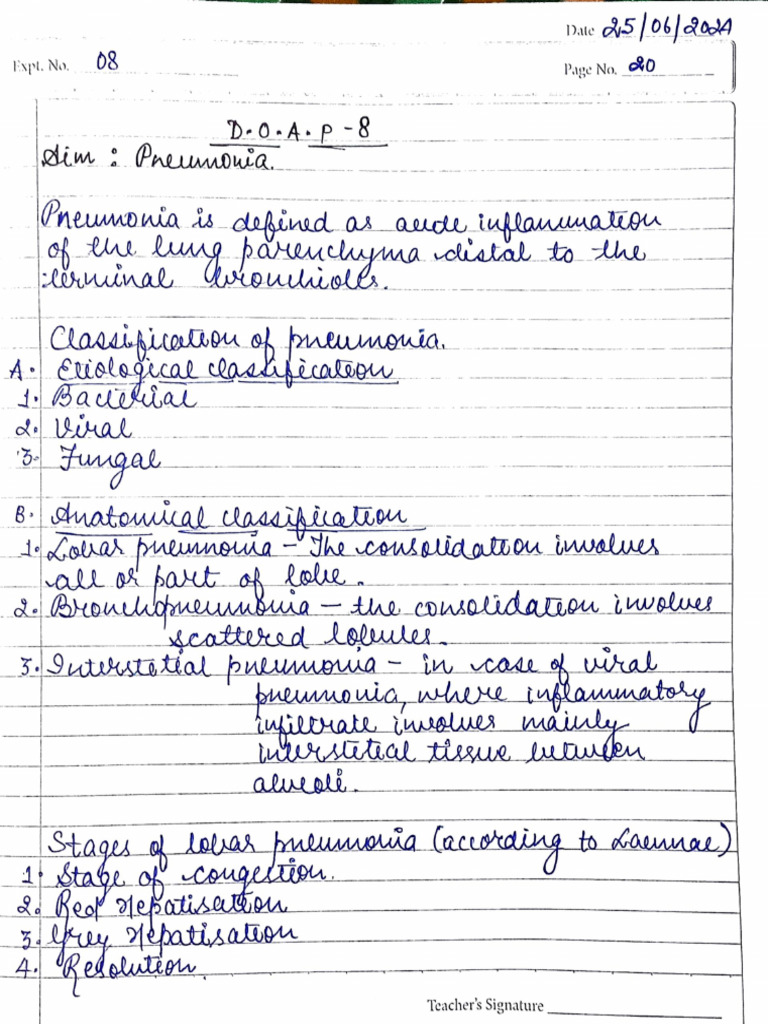 Date 25/06/2024
Expt. No. 08
Page No. 20
D.O.A.P-8
Aim : Pneumonia.
Pneumonia is defined as acute inflammation
of the lung parenchyma distal to the
terminal bronchioles.
Classification of pneumonia.
A. Etiological classification
1. Bacterial
2. Viral
3. Fungal
B. Anatomical classification
1. Lobar pneumonia - The consolidation involves
all or part of lobe.
2. Bronchopneumonia - the consolidation involves
scattered lobules.
3. Interstetial pneumonia - in case of viral
pneumonia, where inflammatory
infiltrate involves mainly
interstetial tissue between
alveoli.
Stages of lobar pneumonia (according to Laennae)
1. Stage of congestion.
2. Red Hepatisation
3. Grey Hepatisation
4. Resolution.
Teacher's Signature